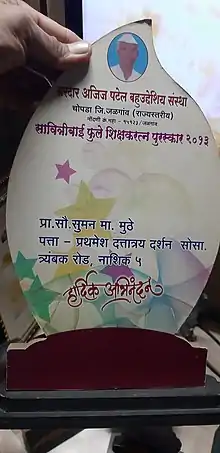 सरदार अजिज पटेल बहुउद्देशिय संस्था
चोपडा जि.जळगांव (राज्यस्तरीय)
सावित्रीबाई फुले शिक्षकरत्न पुरस्कार २०१३
प्रा.सौ.सुमन मा. मुठे
पत्ता - प्रथमेश दत्तात्रय दर्शन सोसा.
त्र्यंबक रोड, नाशिक ५
हार्दिक अभिनंदन